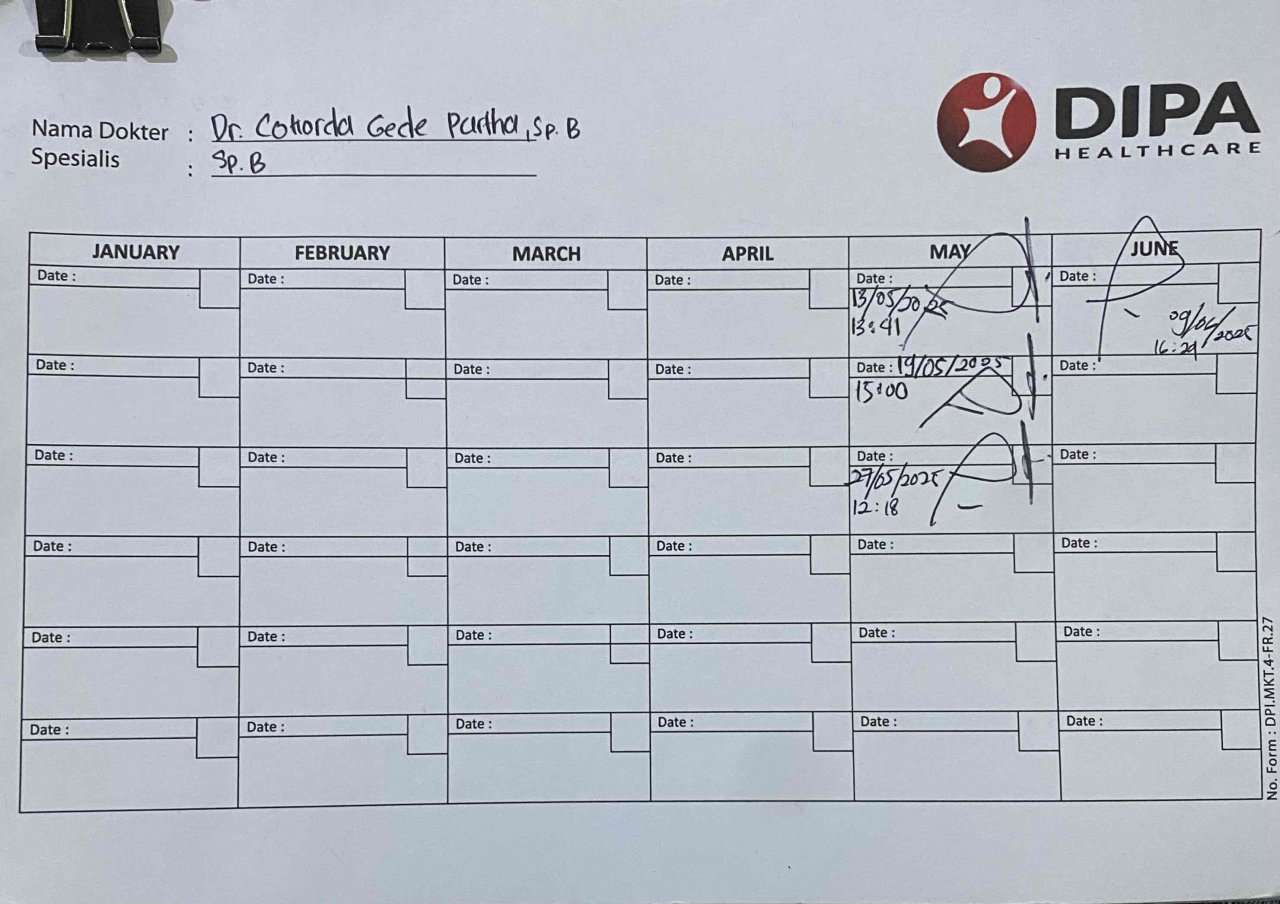 DIPA
HEALTHCARE
Nama Dokter : Dr. Cokorda Gede Partha, Sp. B
Spesialis : Sp. B
JANUARY FEBRUARY MARCH APRIL MAY JUNE
Date : Date : Date : Date : Date : Date :
13/05/2025
13:41
09/06/2025
16:29
Date : Date : Date : Date : Date : 19/05/2025 Date :
15:00
Date : Date : Date : Date : Date : Date :
27/05/2025
12:18
Date : Date : Date : Date : Date : Date :
Date : Date : Date : Date : Date : Date :
Date : Date : Date : Date : Date : Date :
No. Form : DPI.MKT.4-FR.27